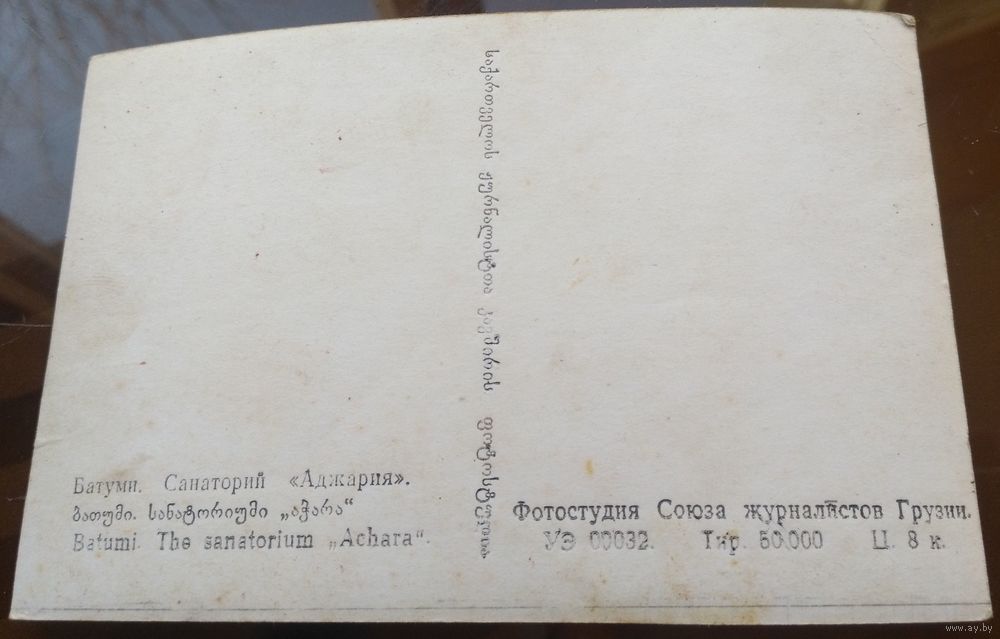 Батуми. Санаторий «Аджария».
ბათუმი. სანატორიუმი „აჭარა“
Batumi. The sanatorium „Achara“.
საქართველოს ჟურნალისტთა კავშირის ფოტოსტუდია
Фотостудия Союза журналистов Грузии.
УЭ 00032. Тир. 50.000 Ц. 8 к.
www.ay.by